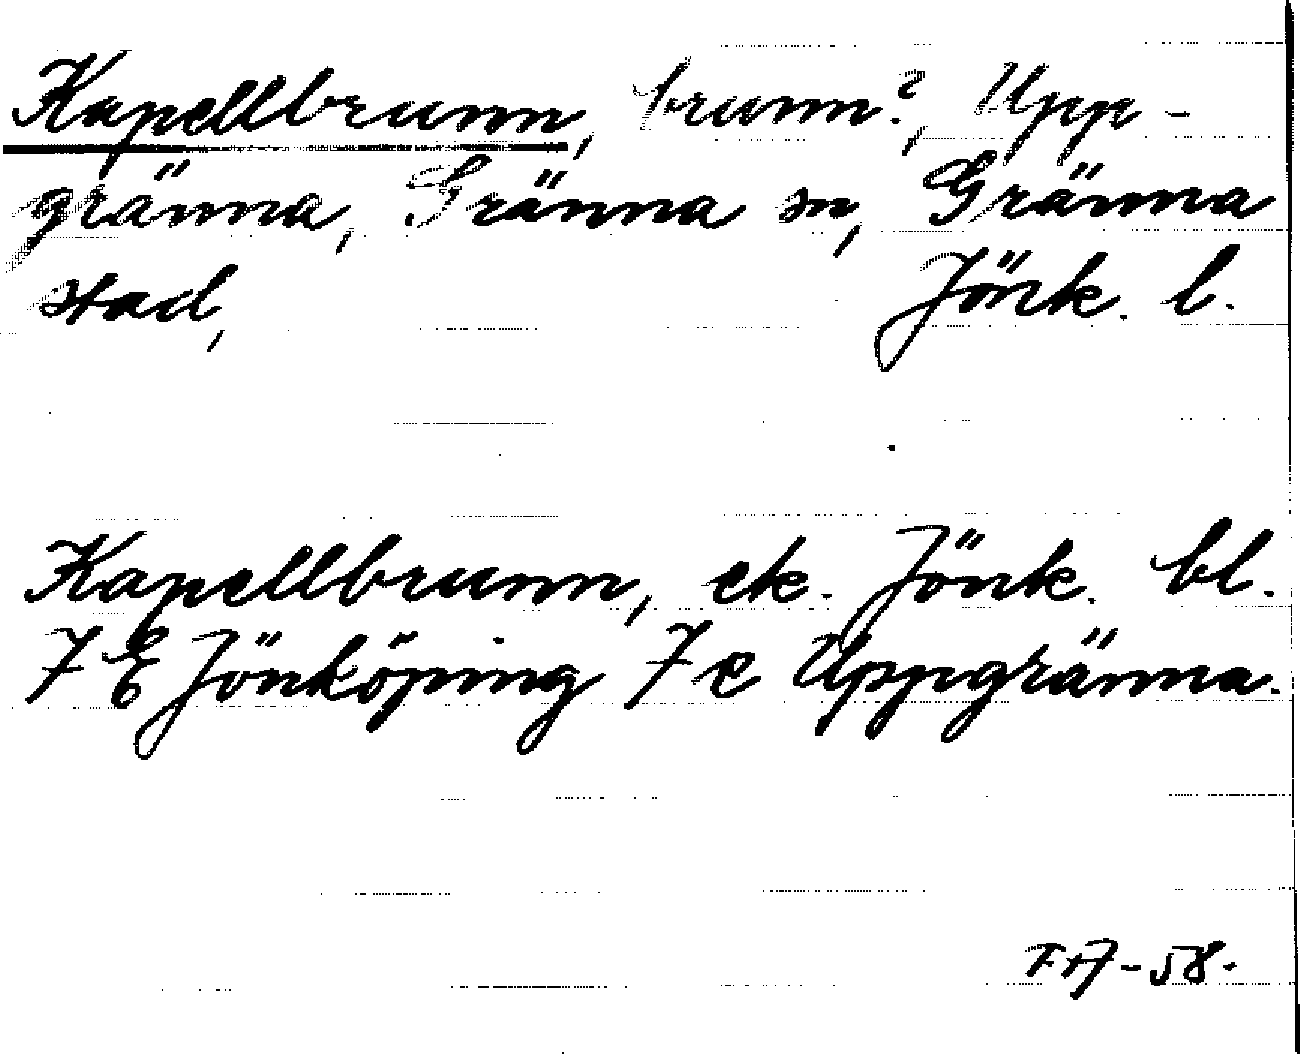 Kapellbrunn, brunn?, Upp-
gränna, Gränna sn, Gränna
stad, Jönk. l.
Kapellbrunn, ek. Jönk. bl.
7 E Jönköping 7 e Uppgränna.
-58.